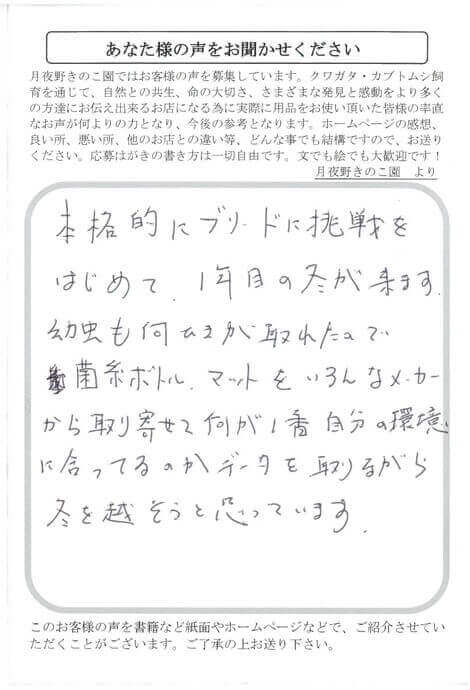 あなた様の声をお聞かせください
月夜野きのこ園ではお客様の声を募集しています。クワガタ・カブトムシ飼
育を通じて、自然との共生、命の大切さ、さまざまな発見と感動をより多く
の方達にお伝え出来るお店になる為に実際に用品をお使い頂いた皆様の率直
なお声が何よりの力となり、今後の参考となります。ホームページの感想、
良い所、悪い所、他のお店との違い等、どんな事でも結構ですので、お送り
ください。応募はがきの書き方は一切自由です。文でも絵でも大歓迎です！
月夜野きのこ園　より
本格的にブリードに挑戦を
はじめて、1年目の冬が来ます。
幼虫も何ひきか取れたので
菌糸ボトル、マットをいろんなメーカー
から取り寄せて何が1番自分の環境
に合ってるのかデータを取りながら
冬を越そうと思っています。
このお客様の声を書籍など紙面やホームページなどで、ご紹介させてい
ただくことがございます。ご了承の上お送り下さい。